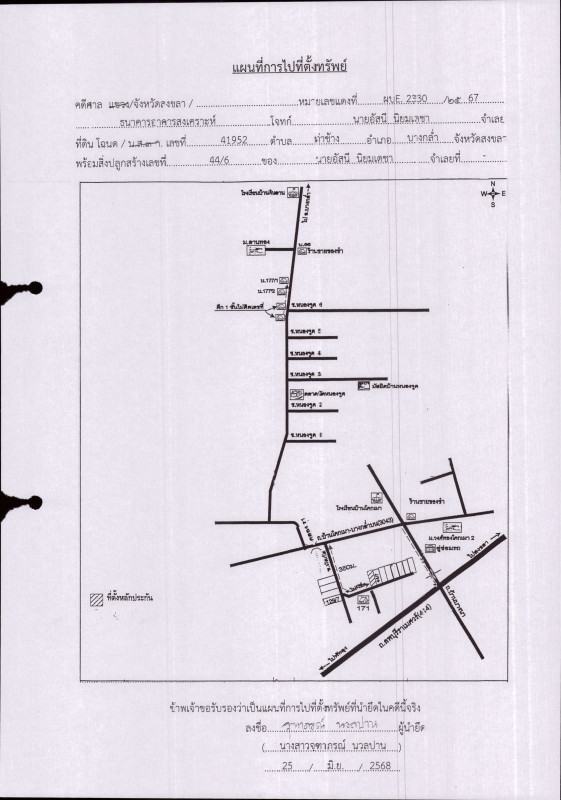 แผนที่การไปที่ตั้งทรัพย์
คดีศาล แขวง/จังหวัดสงขลา / หมายเลขแดงที่ ผบE. 2330 /๒๕ 67
ธนาคารอาคารสงเคราะห์ โจทก์ นายอัสนี นิยมเดชา จำเลย
ที่ดิน โฉนด / น.ส.๓ก. เลขที่ 41952 ตำบล ท่าช้าง อำเภอ บางกล่ำ จังหวัดสงขลา
พร้อมสิ่งปลูกสร้างเลขที่ 44/6 ของ นายอัสนี นิยมเดชา จำเลยที่ -
N
W E
S
ม.ลานทอง
ร้านขายของชำ
น.177/1
น.177/2
ตึก 1 ชั้นไม่ติดเลขที่
ซ.หนองขูด 6
ซ.หนองขูด 5
ซ.หนองขูด 4
ซ.หนองขูด 3
มัสยิดบ้านหนองขูด
ตลาดนัดหนองขูด
ซ.หนองขูด 2
ซ.หนองขูด 1
โรงเรียนบ้านโคกเมา
ร้านขายของชำ
ถ.บ้านโคกเมา-บางกล่ำบน(3043)
ม.วงศ์ทองโคกเมา 2
อู่ซ่อมรถ
ไปสงขลา
350ม.
171
ถ.ลพบุรีราเมศวร์(414)
ไปพัทลุง
ที่ตั้งหลักประกัน
ข้าพเจ้าขอรับรองว่าเป็นแผนที่การไปที่ตั้งทรัพย์ที่นำยึดในคดีนี้จริง
ลงชื่อ จุฑาภรณ์ นวลปาน ผู้นำยึด
( นางสาวจุฑาภรณ์ นวลปาน )
25 / มิ.ย. / 2568